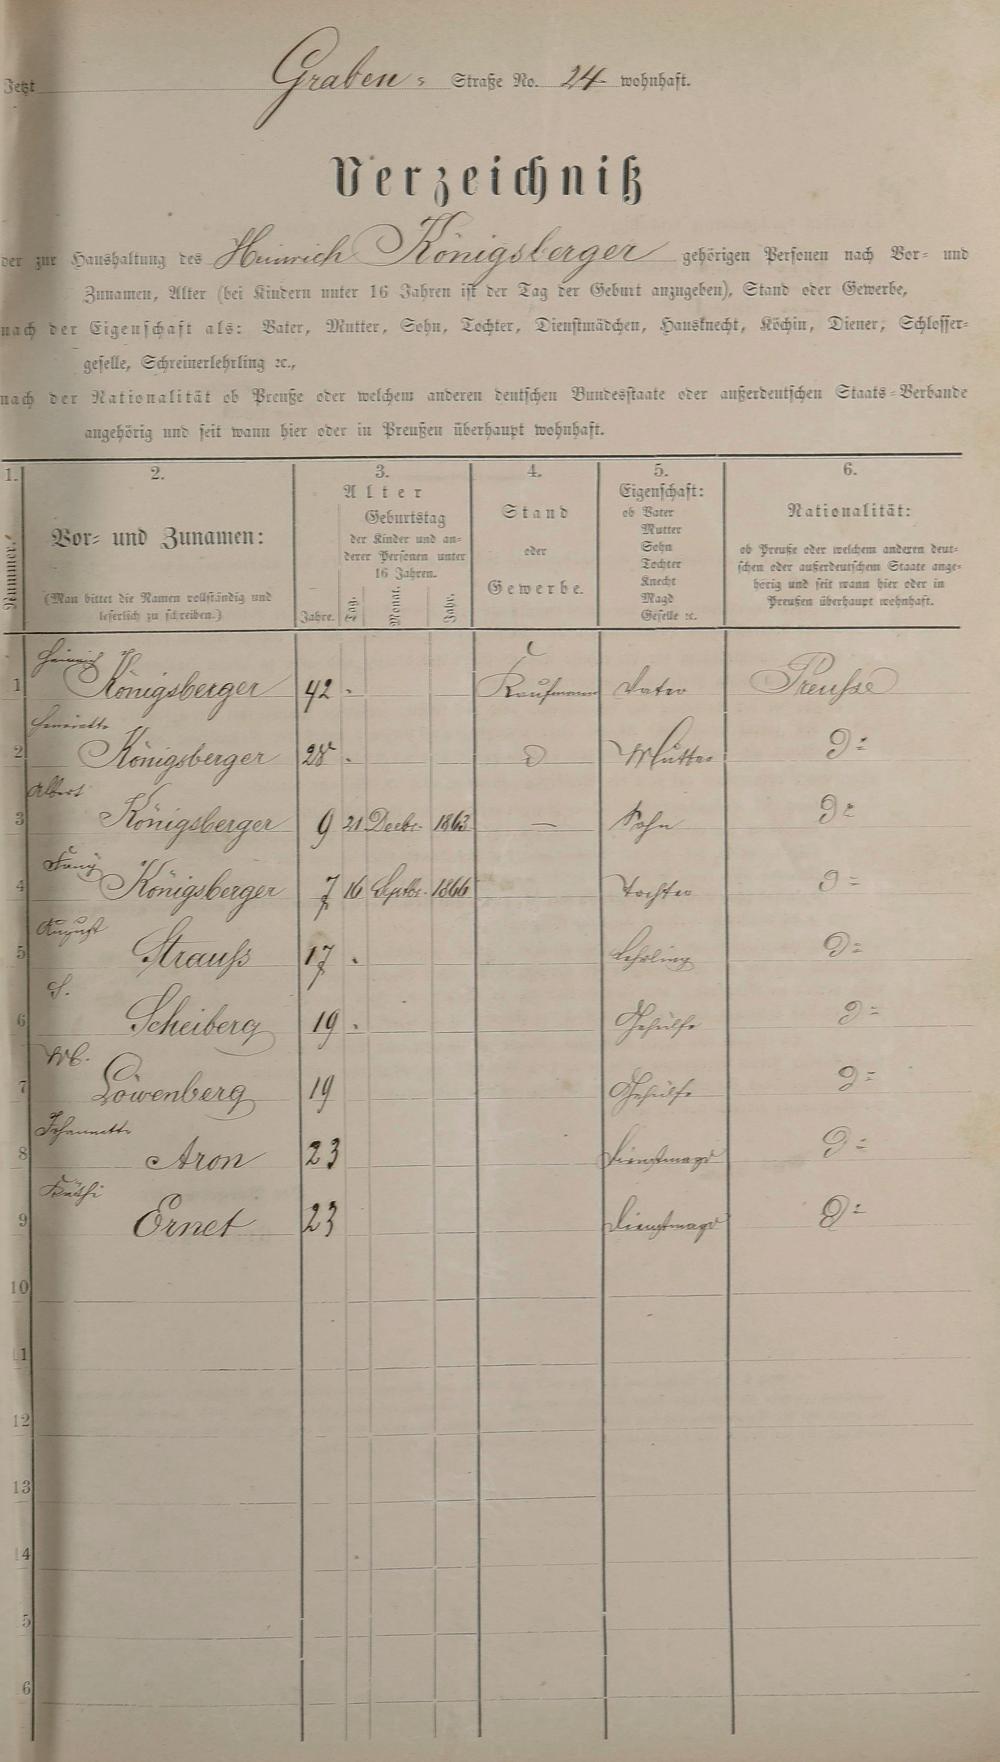 Jetzt Graben- Straße No. 24 wohnhaft.
Verzeichniß
der zur Haushaltung des Heinrich Königsberger gehörigen Personen nach Vor- und
Zunamen, Alter (bei Kindern unter 16 Jahren ist der Tag der Geburt anzugeben), Stand oder Gewerbe,
nach der Eigenschaft als: Vater, Mutter, Sohn, Tochter, Dienstmädchen, Hausknecht, Köchin, Diener, Schlosser-
geselle, Schreinerlehrling ꝛc.,
nach der Nationalität ob Preuße oder welchem anderen deutschen Bundesstaate oder außerdeutschen Staats-Verbande
angehörig und seit wann hier oder in Preußen überhaupt wohnhaft.
1.
Nummer.
2.
Vor- und Zunamen:
(Man bittet die Namen vollständig und
leserlich zu schreiben.)
3.
Alter
Jahre.
Geburtstag
der Kinder und an-
derer Personen unter
16 Jahren.
Tag. Monat. Jahr.
4.
Stand
oder
Gewerbe.
5.
Eigenschaft:
ob Vater
Mutter
Sohn
Tochter
Knecht
Magd
Geselle ꝛc.
6.
Nationalität:
ob Preuße oder welchem anderen deut-
schen oder außerdeutschem Staate ange-
hörig und seit wann hier oder in
Preußen überhaupt wohnhaft.
Heinrich
1 Königsberger 42 Kaufmann Vater Preusse
Henriette
2 Königsberger 28 Mutter
Albert
3 Königsberger 9 21 Decbr. 1863 — Sohn
Fany
4 Königsberger 7 16 Septbr. 1866 Tochter
August
5 Strauss 17 Lehrling
S.
6 Scheiberg 19 Gehülfe
M.
7 Löwenberg 19 Gehülfe
Johannette
8 Aron 23 Dienstmagd
Käthi
9 Ernet 23 Dienstmagd
10
11
12
13
14
5
6